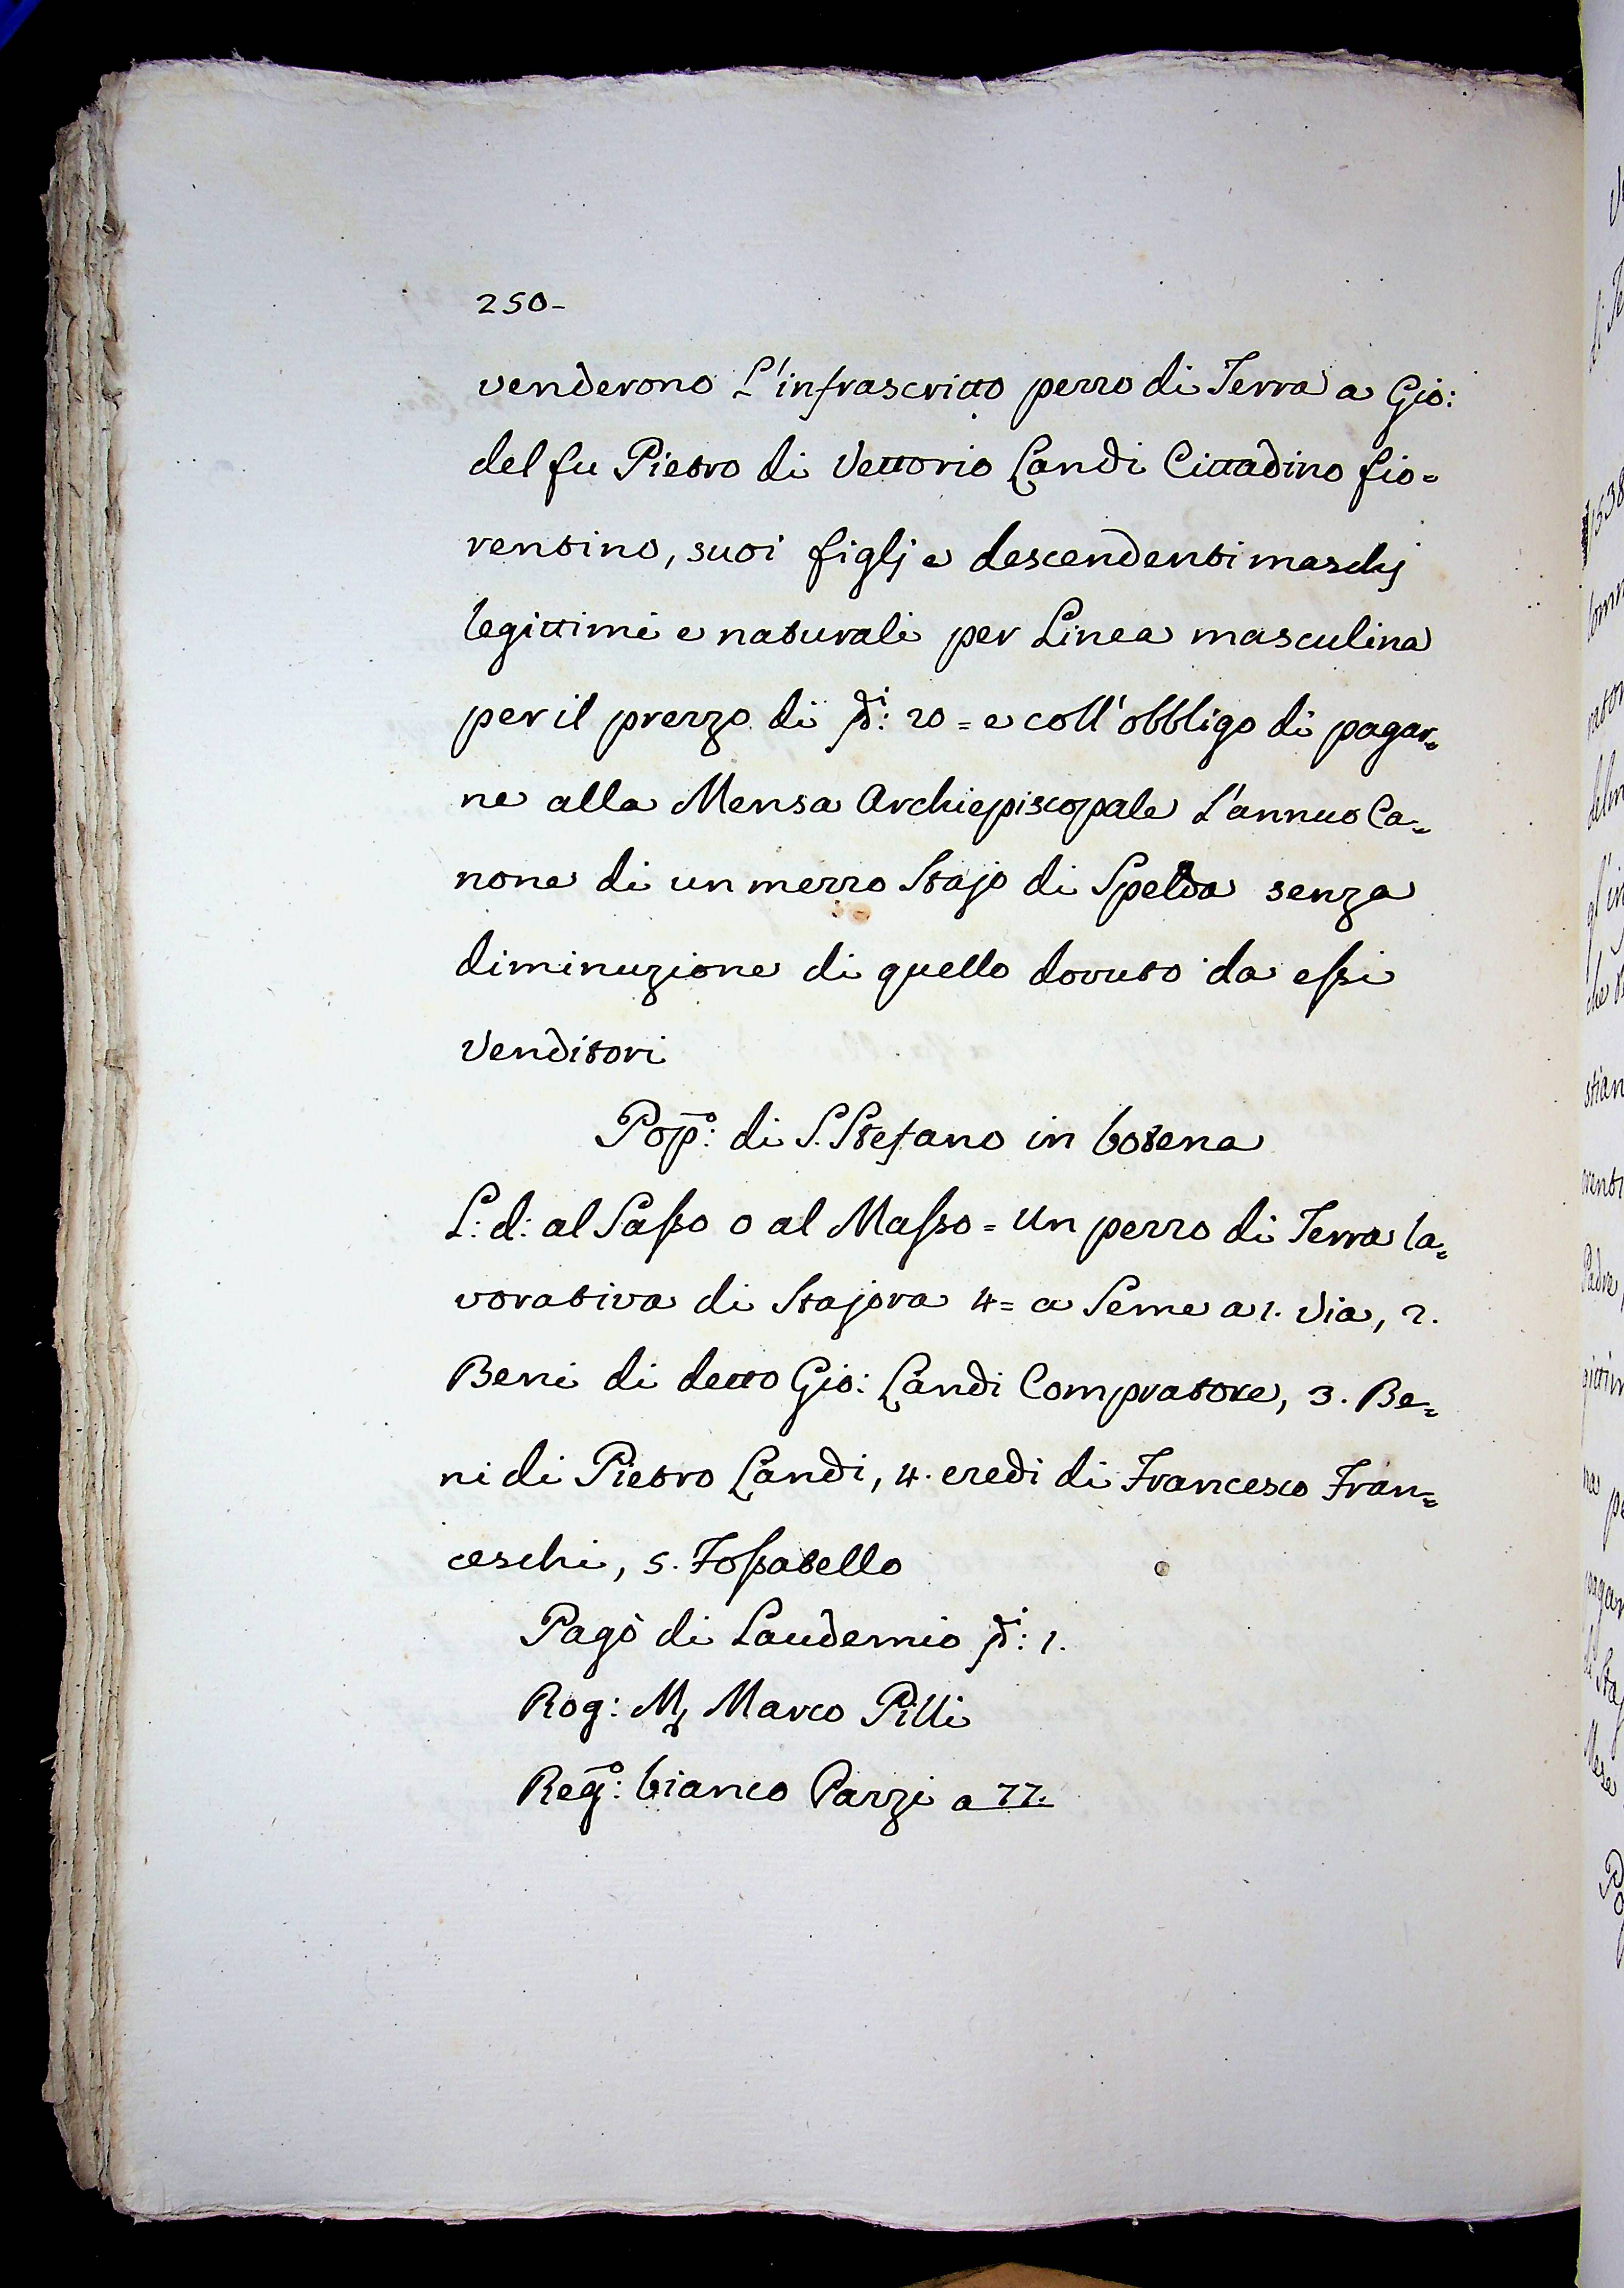 250-
venderono L'infrascritto pezzo di Terra a Gio:
del fu Pietro di Vettorio Landi Cittadino fio=
rentino, suoi figlj e descendenti maschj
legittimi e naturali per Linea masculina
per il prezzo di 20= e coll'obbligo di pagar=
ne alla Mensa Archiepiscopale L'annuo Ca=
none di un mezzo Stajo di Spelda senza
diminuzione di quello dovuto da essi
Venditori
Pop̄o: di S. Stefano in botena
L: d: al Sasso o al Masso = Un pezzo di Terra la=
vorativa di Stajora 4= a Seme a 1. Via, 2.
Beni di detto Gio: Landi Compratore, 3. Be=
ni di Pietro Landi, 4. eredi di Francesco Fran=
ceschi, 5. Fossatello
Pagò di Laudemio 1.
Rog: Marco Pilli
Reg̃o: bianco Pazzi a 77.